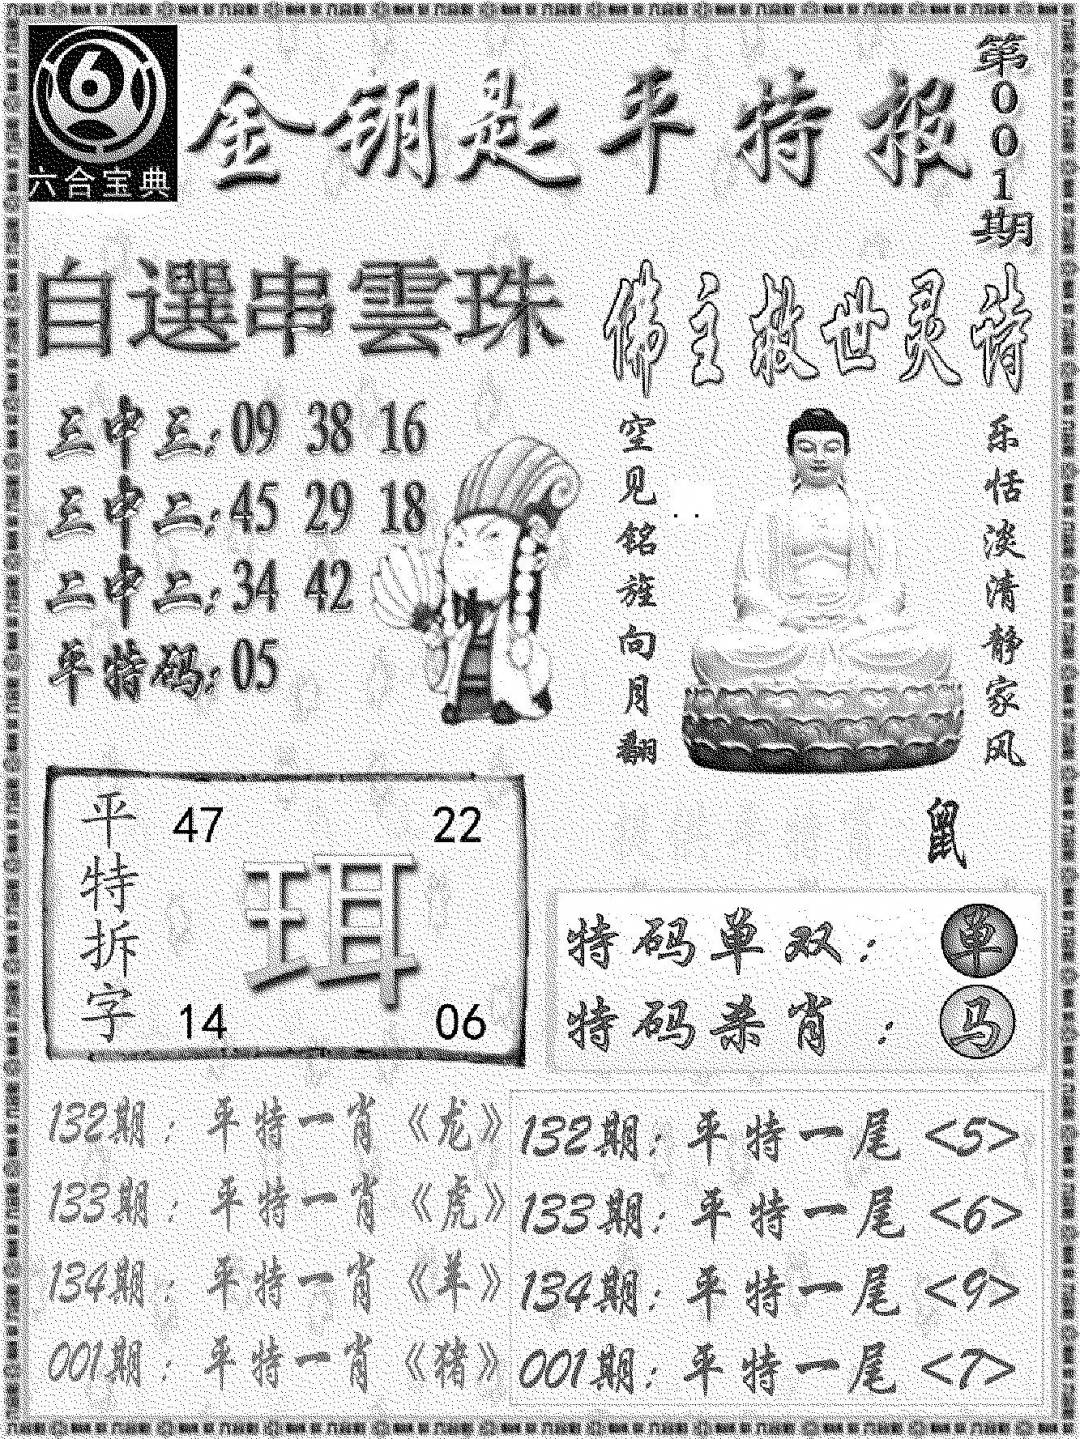 6
六合宝典
金钥匙平特报
第001期
自選串雲珠
三中三:09 38 16
三中二:45 29 18
二中二:34 42
平特码:05
佛主救世灵诗
空见铭旌向月翻
乐恬淡清静家风
鼠
平特拆字
47 22
珥
14 06
特码单双:单
特码杀肖:马
132期:平特一肖《龙》
133期:平特一肖《虎》
134期:平特一肖《羊》
001期:平特一肖《猪》
132期:平特一尾<5>
133期:平特一尾<6>
134期:平特一尾<9>
001期:平特一尾<7>